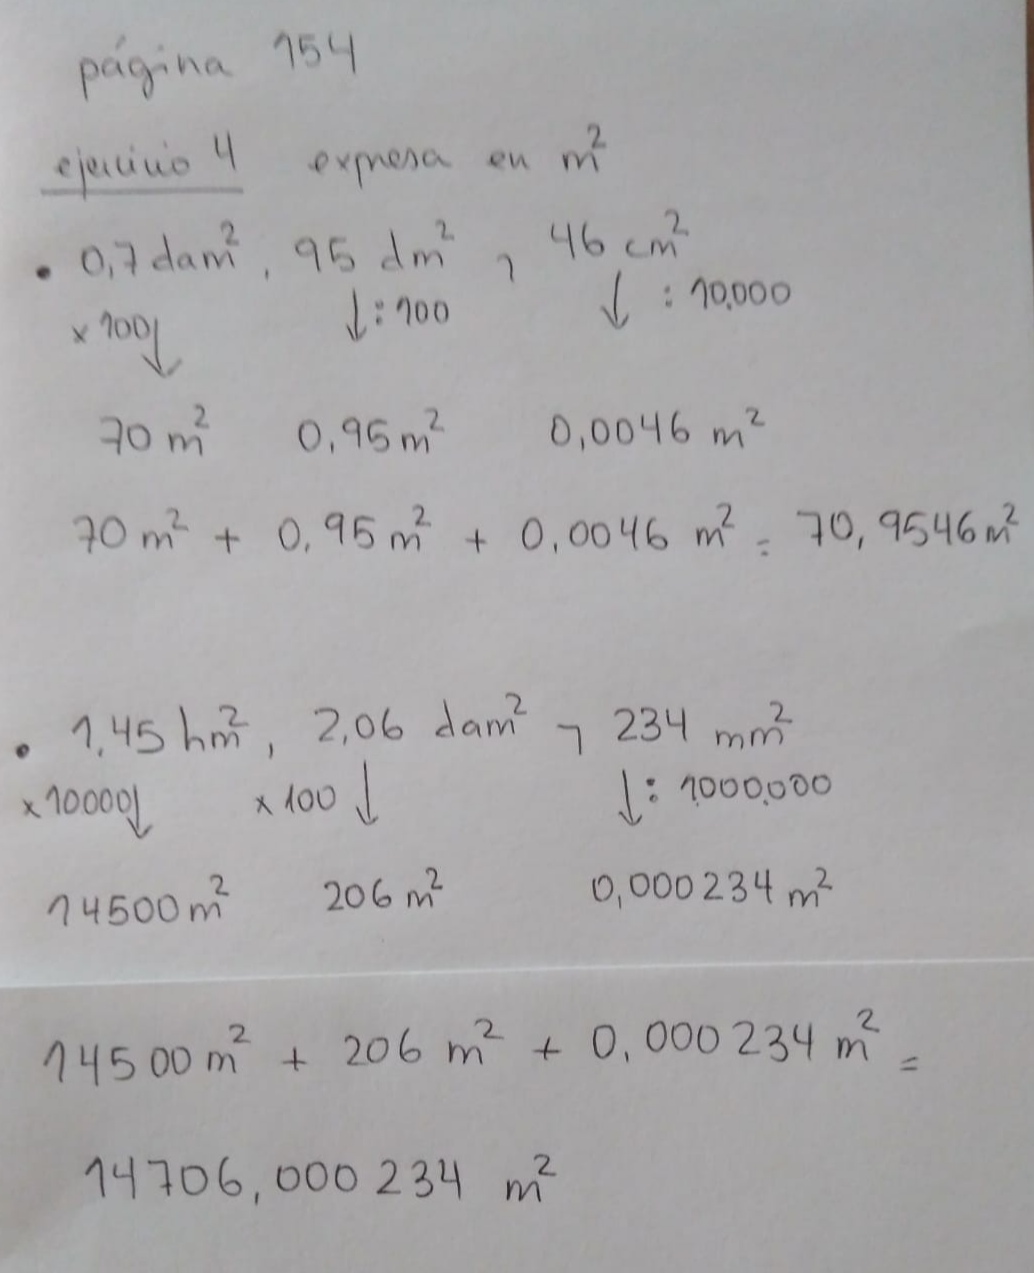 página 154
ejercicio 4 expresa en m²
• 0,7 dam², 95 dm², 46 cm²
x 100↓ ↓: 100 ↓ : 10.000
70 m² 0,95 m² 0,0046 m²
70 m² + 0,95 m² + 0,0046 m² = 70,9546 m²
• 1,45 hm², 2,06 dam², 234 mm²
x 10000↓ x 100 ↓ ↓: 1.000.000
14500 m² 206 m² 0,000234 m²
14500 m² + 206 m² + 0,000234 m² =
14706,000234 m²